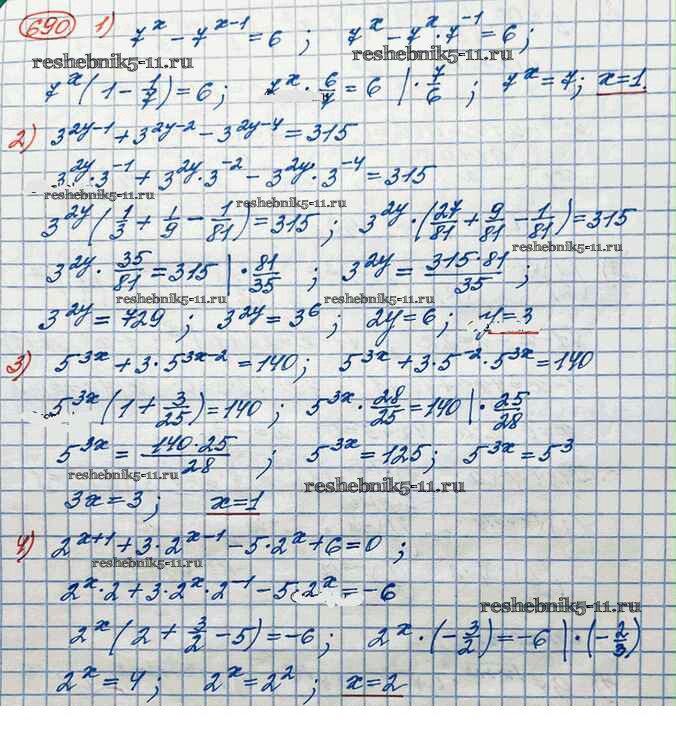 690 1) 7^x − 7^{x−1} = 6 ; 7^x − 7^x · 7^{−1} = 6 ;
reshebnik5-11.ru reshebnik5-11.ru
7^x (1 − 1/7) = 6 ; 7^x · 6/7 = 6 | · 7/6 ; 7^x = 7; x=1.
2) 3^{2y−1} + 3^{2y−2} − 3^{2y−4} = 315
3^{2y} · 3^{−1} + 3^{2y} · 3^{−2} − 3^{2y} · 3^{−4} = 315
reshebnik5-11.ru
3^{2y} (1/3 + 1/9 − 1/81) = 315 ; 3^{2y} · (27/81 + 9/81 − 1/81) = 315
3^{2y} · 35/81 = 315 | · 81/35 ; 3^{2y} = 315·81/35 ;
reshebnik5-11.ru
3^{2y} = 729 ; 3^{2y} = 3^6 ; 2y = 6 ; y = 3
3) 5^{3x} + 3 · 5^{3x−2} = 140 ; 5^{3x} + 3 · 5^{−2} · 5^{3x} = 140
5^{3x} (1 + 3/25) = 140 ; 5^{3x} · 28/25 = 140 | · 25/28
5^{3x} = 140·25/28 ; 5^{3x} = 125 ; 5^{3x} = 5^3
reshebnik5-11.ru reshebnik5-11.ru
3x = 3 ; x=1
4) 2^{x+1} + 3 · 2^{x−1} − 5 · 2^x + 6 = 0 ;
reshebnik5-11.ru
2^x · 2 + 3 · 2^x · 2^{−1} − 5 · 2^x = −6
reshebnik5-11.ru
2^x (2 + 3/2 − 5) = −6 ; 2^x · (−3/2) = −6 | · (−2/3)
2^x = 4 ; 2^x = 2^2 ; x=2